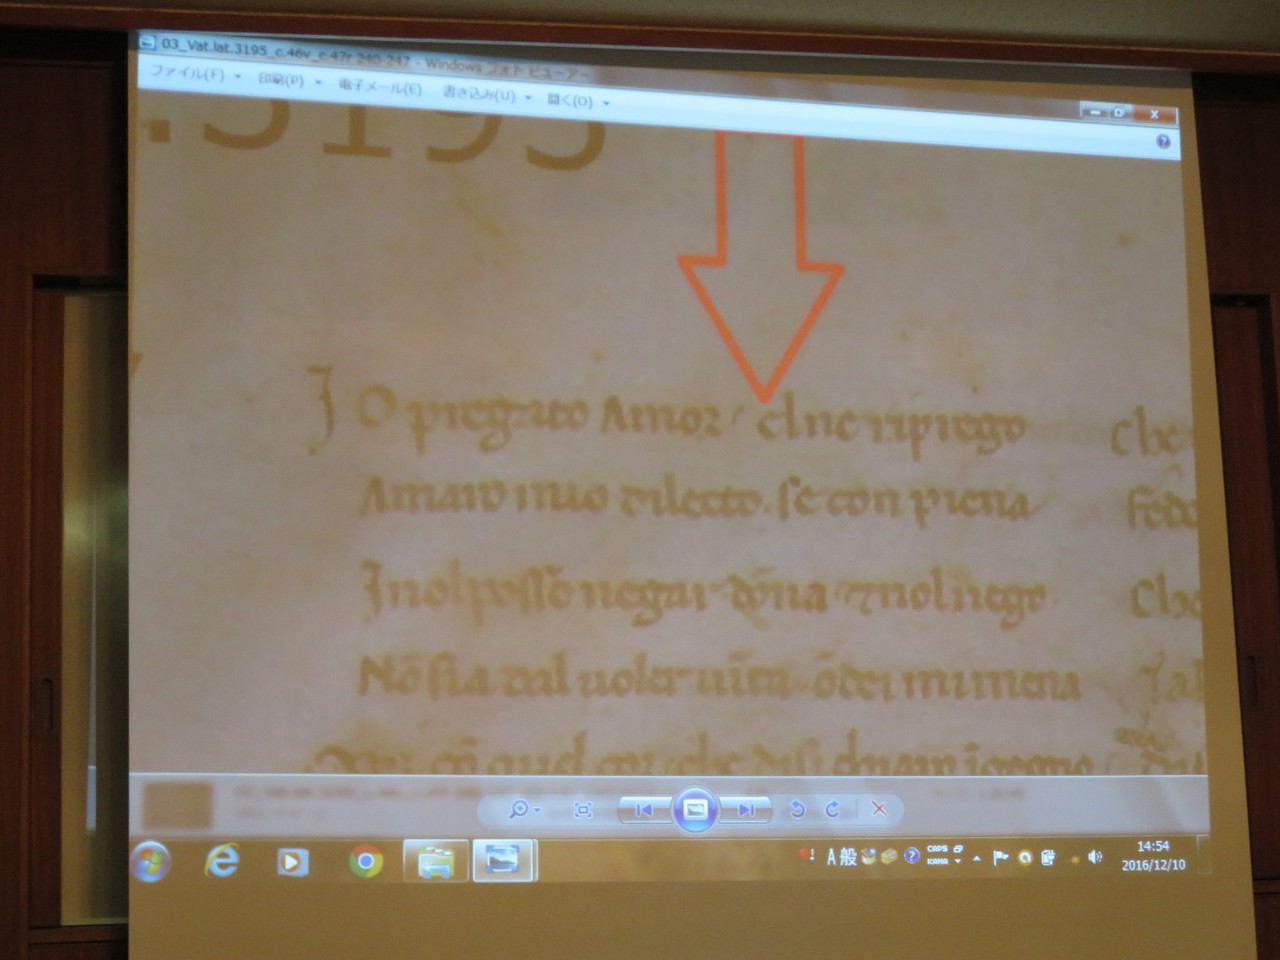 03_Vat.lat.3195_c.46v_c.47r 240-247 - Windows フォト ビューアー
ファイル(F) 印刷(P) 電子メール(E) 書き込み(U) 開く(O)
.3195
I O pregato Amor / elne riprego Che
Amaro mio dilecto. se con piena Fede
Inol posso negar dōna ⁊ nol nego Che
Nō sia dal uoler uīta. ōdei mimena Tal
che
A 般 CAPS KANA
14:54
2016/12/10